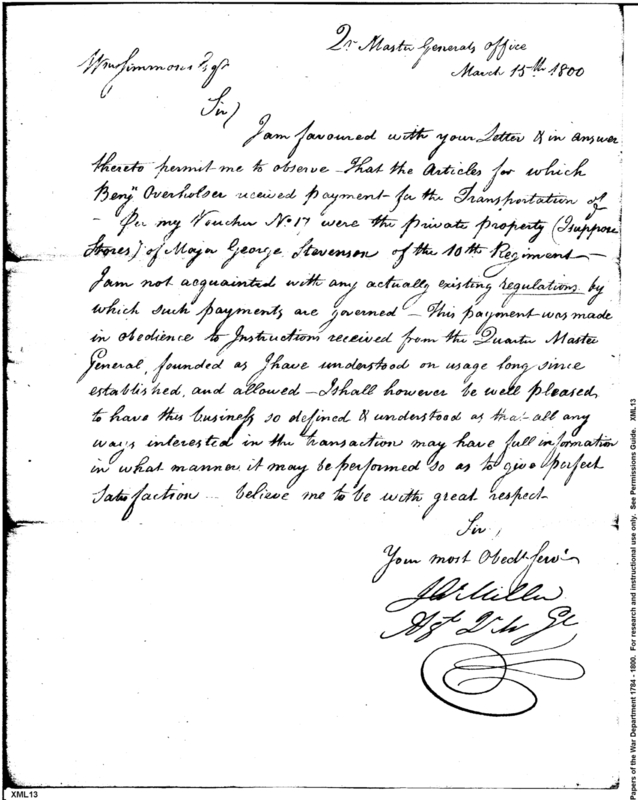 Qr Master Generals office
March 15th 1800
Wm Simmons Esqr
Sir)
I am favoured with your Letter & in answer
thereto permit me to observe - That the Articles for which
Benjn Overholser received payment for the Transportation of
- Per my Voucher No. 17 were the private property (I suppose
Stores) of Major George Stevenson of the 10th Regiment -
I am not acquainted with any actually existing regulations by
which such payments are governed - This payment was made
in obedience to Instructions received from the Quarter Master
General, founded as I have understood on usage long since
established, and allowed - I shall however be well pleased
to have this business so defined & understood as that all any
ways interested in the transaction may have full information
in what manner it may be performed so as to give perfect
satisfaction - believe me to be with great respect
Sir,
Your most Obedt Servt
Jno Miller
Agt Qr M Gl
XML13
Papers of the War Department 1784 - 1800. For research and instructional use only. See Permissions Guide. XML13